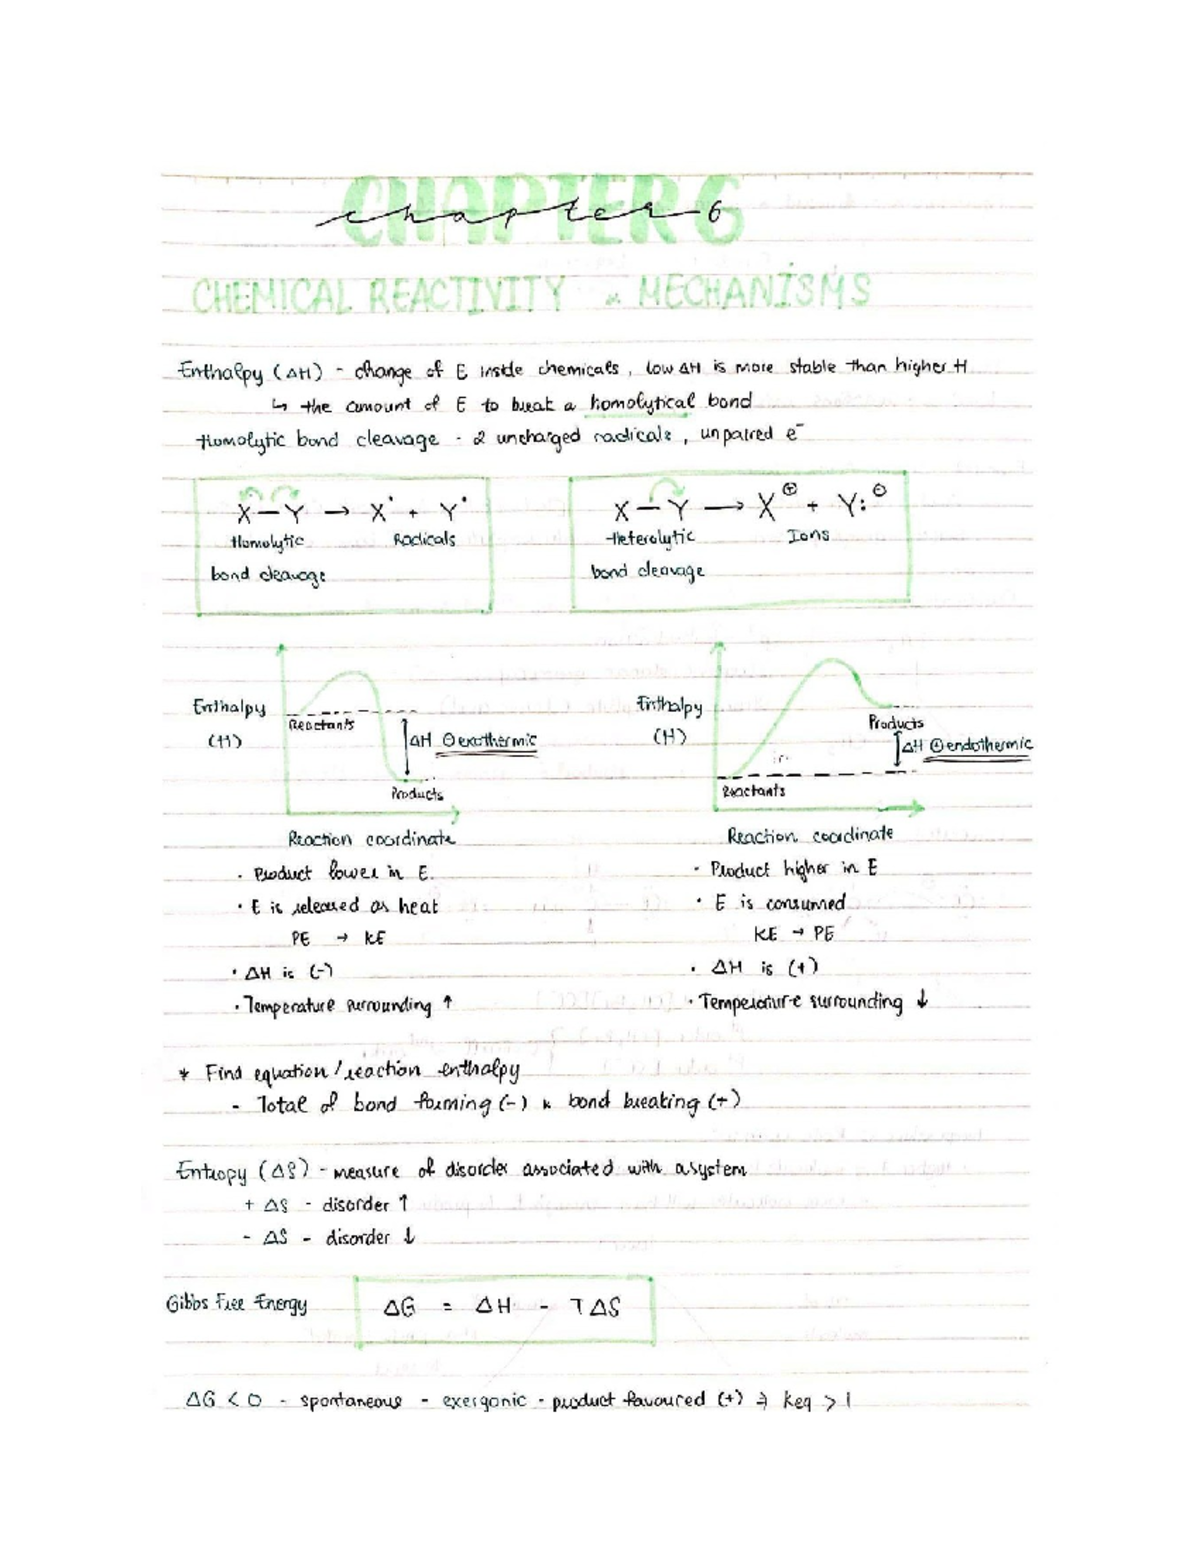 CHAPTER 6
chapter 6
CHEMICAL REACTIVITY & MECHANISMS
Enthalpy (ΔH) - change of E inside chemicals, low ΔH is more stable than higher H
↳ the amount of E to break a homolytical bond
Homolytic bond cleavage - 2 uncharged radicals, unpaired e⁻
X — Y → X• + Y•
Homolytic Radicals
bond cleavage
X — Y → X⊕ + Y:⊖
Heterolytic Ions
bond cleavage
Enthalpy
(H)
Reactants
ΔH ⊖ exothermic
Products
Reaction coordinate
• Product lower in E.
• E is released as heat
PE → KE
• ΔH is (-)
• Temperature surrounding ↑
Enthalpy
(H)
Products
ΔH ⊕ endothermic
Reactants
Reaction coordinate
• Product higher in E
• E is consumed
KE → PE
• ΔH is (+)
• Temperature surrounding ↓
* Find equation / reaction enthalpy
- Total of bond forming (-) & bond breaking (+)
Entropy (ΔS) - measure of disorder associated with a system
+ ΔS - disorder ↑
- ΔS - disorder ↓
Gibbs Free Energy
ΔG = ΔH - TΔS
ΔG < 0 - spontaneous - exergonic - product favoured (+) → Keq > 1